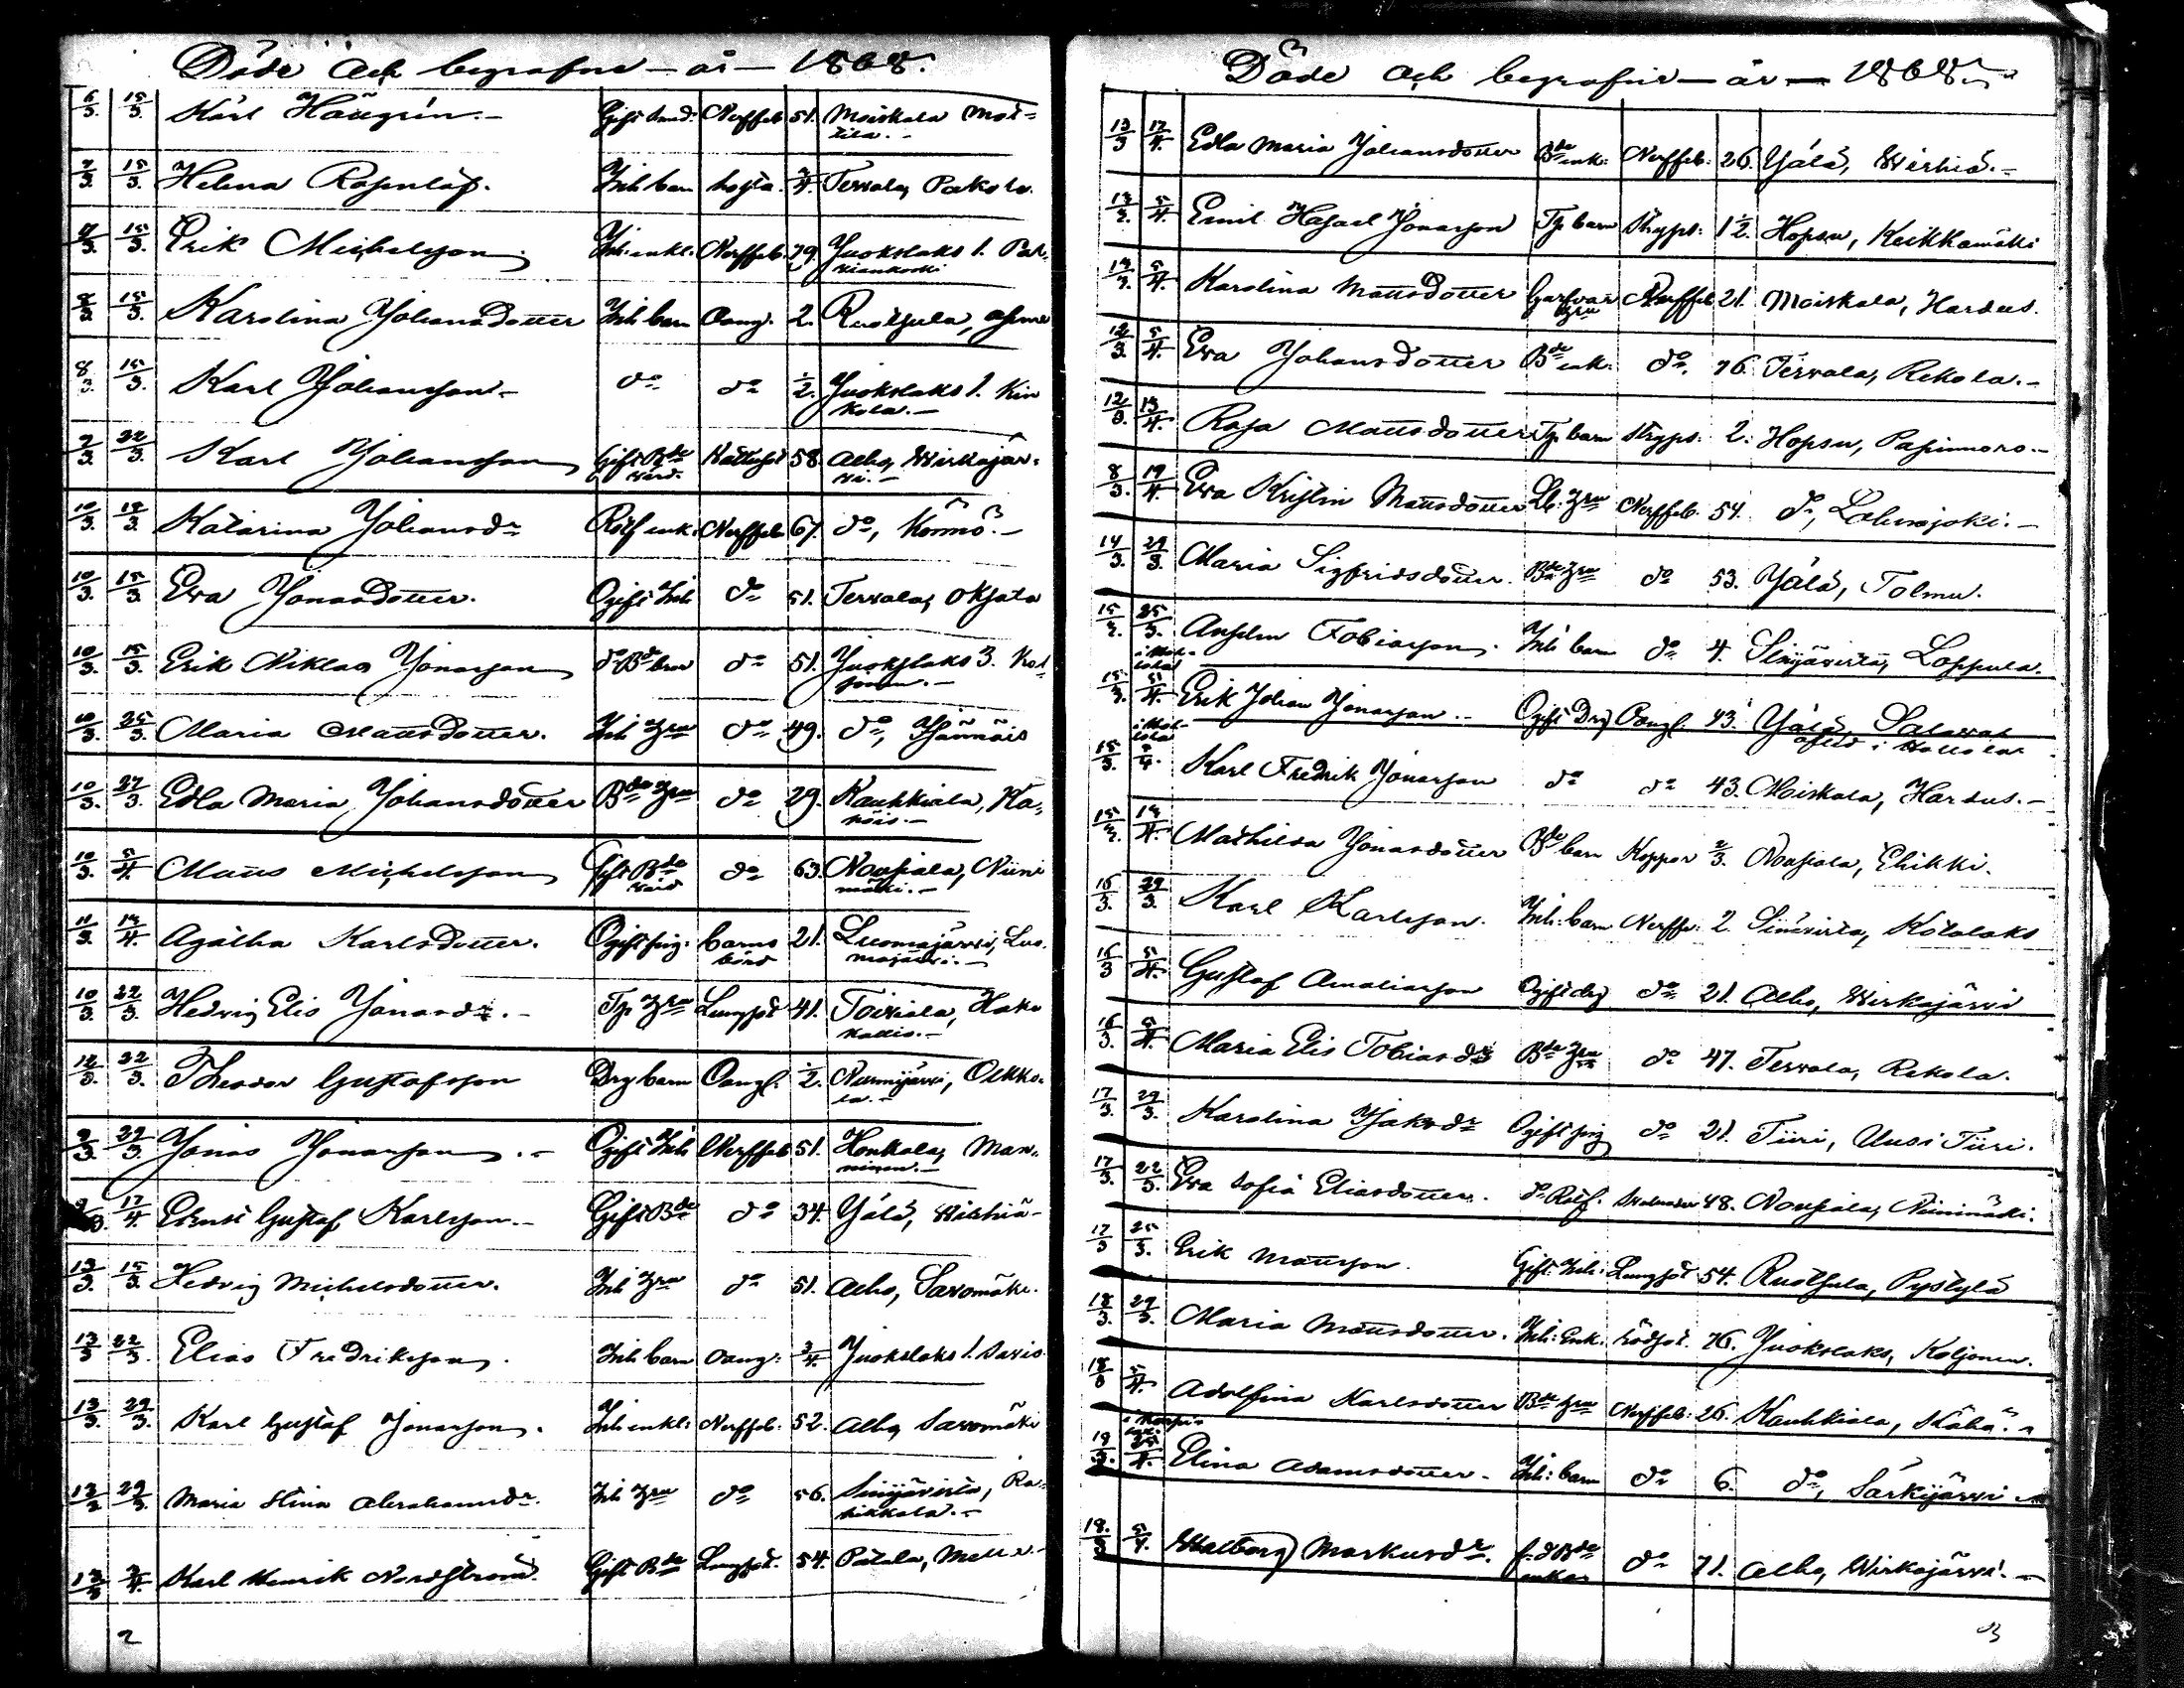 Döde och begrafne – år – 1868.
6/3. 15/3. Karl Häugrén. – Gift smed: Nerffeb 51. Moiskala Mot=
tila. –
7/3. 15/3. Helena Rosenlöf. Inh barn 3/4. Terrala, Pakola.
15/3. Erik Michelsson Inh: enkl: Nerffeb. 79. Juokslaks 1. Par-
8/3 15/3. Karolina Johansdotter Inh barn Oang. 2. Ruotsula,
8/3 15/3. Karl Johansson – do do 1/2. Juokslaks 1. Kin
kola. –
7/3. 22/3. Karl Johansson Gift Bde 58. Alho, Wirkajär=
wi. –
värd.
10/3. 19/3 Katarina Johansdr Rotf enk: Nerffeb 67. do, Könnö. –
10/3. 15/3 Eva Jonasdotter. Ogift Inh do 51. Terrala, Oksala
10/3. 15/3. Erik Niklas Jonasson do Bde bror do 51. Juokslaks 3.
10/3. 25/3. Maria Mattsdotter. Inh hru do 49. do, Jännäis
10/3. 27/3. Edla Maria Johansdotter Bde hru do 29. Kauhkiala, Ka=
häis. –
10/3. 5/4. Matts Michelsson Gift Bde do 63. Nousiala, Niini
mäki. –
värd
11/3. 19/4. Agatha Karlsdotter. Ogift pig. barns 21. Luomajärvi, Luo.
börd majärvi. –
10/3. 22/3. Hedvig Elis Jonasdr. – Tp. hru Lungsot 41. Toiviala, Hako
kallio. –
12/3. 22/3. Theodor Gustafsson Drg barn Oang. 1/2. Nurmijärvi, Oekko.
la. –
9/3. 29/3. Jonas Jonasson. – Ogift Inh Nerffeb 51. Honkala, Man.
ninen. –
17/4. Ernst Gustaf Karlsson. – Gift Bde do 34. Ylälä, Wirhiä –
13/3. 15/3. Hedvig Michelsdotter. Inh hru do 51. Alho, Savomäki.
13/3 22/3. Elias Fredriksson. Inh barn Oang: 3/4. Juokslaks 1. Savio
13/3. 29/3. Karl Gustaf Jonasson. Inh enkl: Nerffeb: 52. Alho, Savomäki
13/3 29/3. Maria Stina Abrahamsdr. Inh hru do 56. Sinijävirta, Ra=
hikkala. –
13/3 Karl Henrik Nordström. Gift Bde Lungsot. 54. Patala,
2
Döde och begrafne – år – 1868.
13/3 17/4. Edla Maria Johansdotter Bde enk: Nerffeb: 26. Ylälä, Wirhiä. –
13/3. 5/4. Emil Hasael Jonasson Tp. barn Stryps: 1 1/2. Hopsu, Keikkamäki
5/4. Karolina Mattsdotter Garfvar Nerffeb 21. Moiskala, Hardus.
hru
12/3. 5/4. Eva Johansdotter Bde enk: do. 76. Terrala, Rekola. –
12/3. 13/4. Rosa Mattsdotter Tp. barn Stryps: 2. Hopsu, –
8/3. 19/4. Eva Kristin Mattsdotter Lb: hru Nerffeb. 54. do, Lahnajoki. –
14/3. 29/3. Maria Sigfridsdotter. Bde hru do 53. Ylälä, Tolmu.
15/3. 25/3. Anselm Tobiasson. Inh barn do 4. Sinijävirta, Loppula.
15/3. 5/4. Erik Johan Jonasson. – Ogift Drg Oang. 43. Ylälä,
15/3. Karl Fredrik Jonasson do do 43. Moiskala, Hardus. –
15/3. 19/4. Mathilda Jonasdotter Bde barn Koppor 2/3. Nousiala, Ehikki.
16/3. 29/3. Karl Karlsson. Inh: barn Nerffe: 2. Kotalaks
16/3 5/4. Gustaf Amaliasson Ogift drg do 21. Alho, Wirkajärvi
16/3. Maria Elis Tobiasdr Bde hru do 47. Terrala, Rekola.
17/3. 29/3. Karolina Isaksdr Ogift pig do 21. Tiiri, Uusi Tiiri.
17/3. 22/3. Eva Sofia Eliasdotter. do Rotf. 48. Nousiala, Niinimäki.
17/3 25/3. Erik Mattsson. Gift Inh: Lungsot 54. Ruotsula, Pystylä
18/3. 29/3. Maria Mattsdotter. Inh: Enk. 76. Juokslaks, Koljonen.
18/3 5/4. Adolfina Karlsdotter Bde hru Nerffeb: 26. Kauhkiala,
19/3. 25/4. Elina Adamsdotter – Inh: barn do 6. do, Särkijärvi –
19/3 5/4. Walborg Markusdr. f.d Bde do 71. Alho, Wirkajärvi. –
enka
3